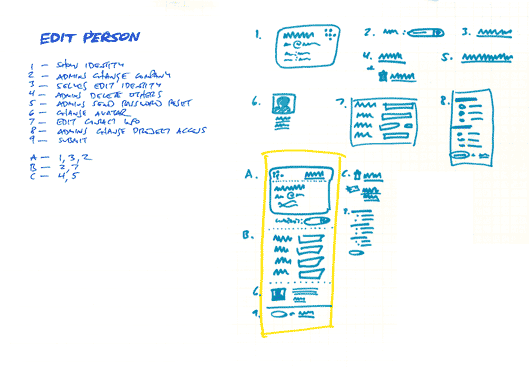 EDIT PERSON
1 — SHOW IDENTITY
2 — ADMINS CHANGE COMPANY
3 — SELVES EDIT IDENTITY
4 — ADMINS DELETE OTHERS
5 — ADMINS SEND PASSWORD RESET
6 — CHANGE AVATAR
7 — EDIT CONTACT INFO
8 — ADMINS CHANGE PROJECT ACCESS
9 — SUBMIT
A — 1, 3, 2
B — 2, 7
C — 4, 5
1.
2.
3.
4.
5.
6.
7.
8.
A.
B.
6.
9.
C.